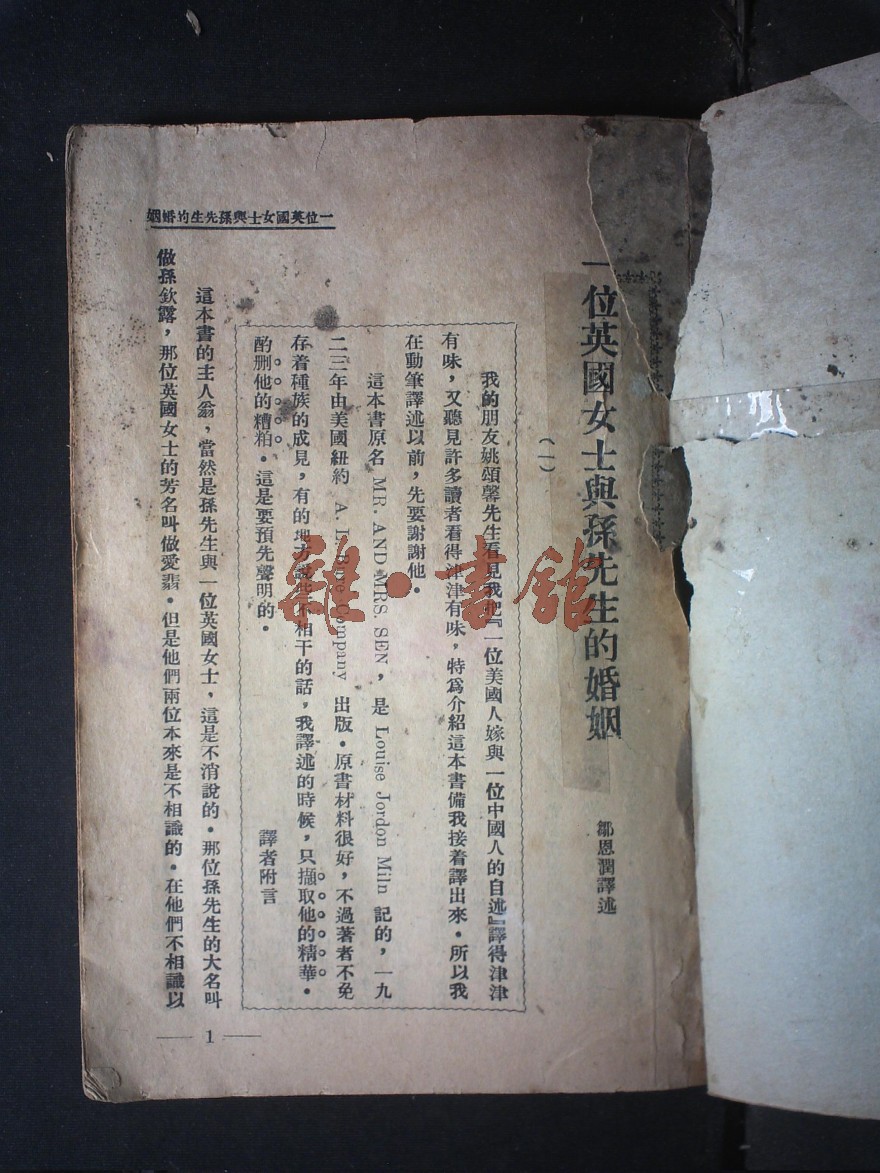 一位英國女士與孫先生的婚姻
一位英國女士與孫先生的婚姻
鄒恩潤譯述
（一）
我的朋友姚頌馨先生看見我把『一位美國人嫁與一位中國人的自述』譯得津津
有味，又聽見許多讀者看得津津有味，特爲介紹這本書備我接着譯出來．所以我
在動筆譯述以前，先要謝謝他．
這本書原名 MR. AND MRS. SEN，是 Louise Jordon Miln 記的，一九
二三年由美國紐約 A. L. Company 出版．原書材料很好，不過著者不免
存着種族的成見，有的地方說些不相干的話，我譯述的時候，只擷取他的精華．
酌刪他的糟粕．這是要預先聲明的．
譯者附言
這本書的主人翁，當然是孫先生與一位英國女士，這是不消說的．那位孫先生的大名叫
做孫欽露，那位英國女士的芳名叫做愛翡．但是他們兩位本來是不相識的．在他們不相識以
1
雜·書館